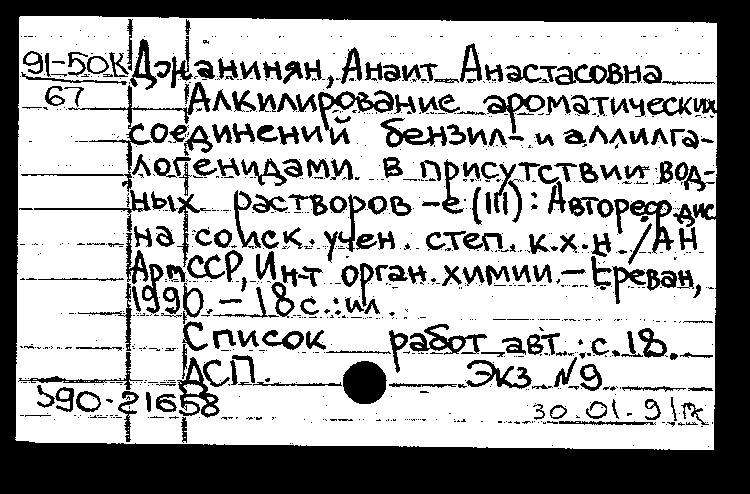 91-50К Джанинян, Анаит Анастасовна
67 Алкилирование ароматических
соединений бензил- и аллилга-
логенидами в присутствии вод-
ных растворов -е (III): Автореф. дис
на соиск. учен. степ. к.х.н. /АН
АрмССР, Ин-т орган. химии. - Ереван,
1990. - 18 с.: ил.
Список работ авт.: с. 18.
ДСП. Экз N9
590-21658 30.01.91